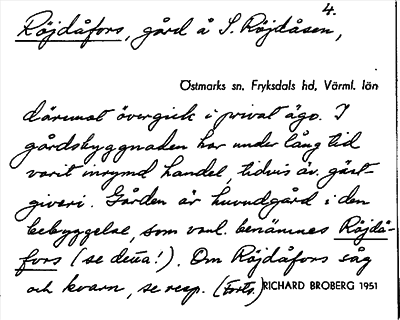 4.
Röjdåfors, gård å S. Röjdåsen,
Östmarks sn, Fryksdals hd, Värml. län
däremot övergick i privat ägo. I
gårdsbyggnaden har under lång tid
varit inrymd handel, tidvis äv. gäst-
giveri. Gården är huvudgård i den
bebyggelse, som vanl. benämnes Röjdå-
fors (se detta!). Om Röjdåfors såg
och kvarn, se resp. (Forts.)
RICHARD BROBERG 1951